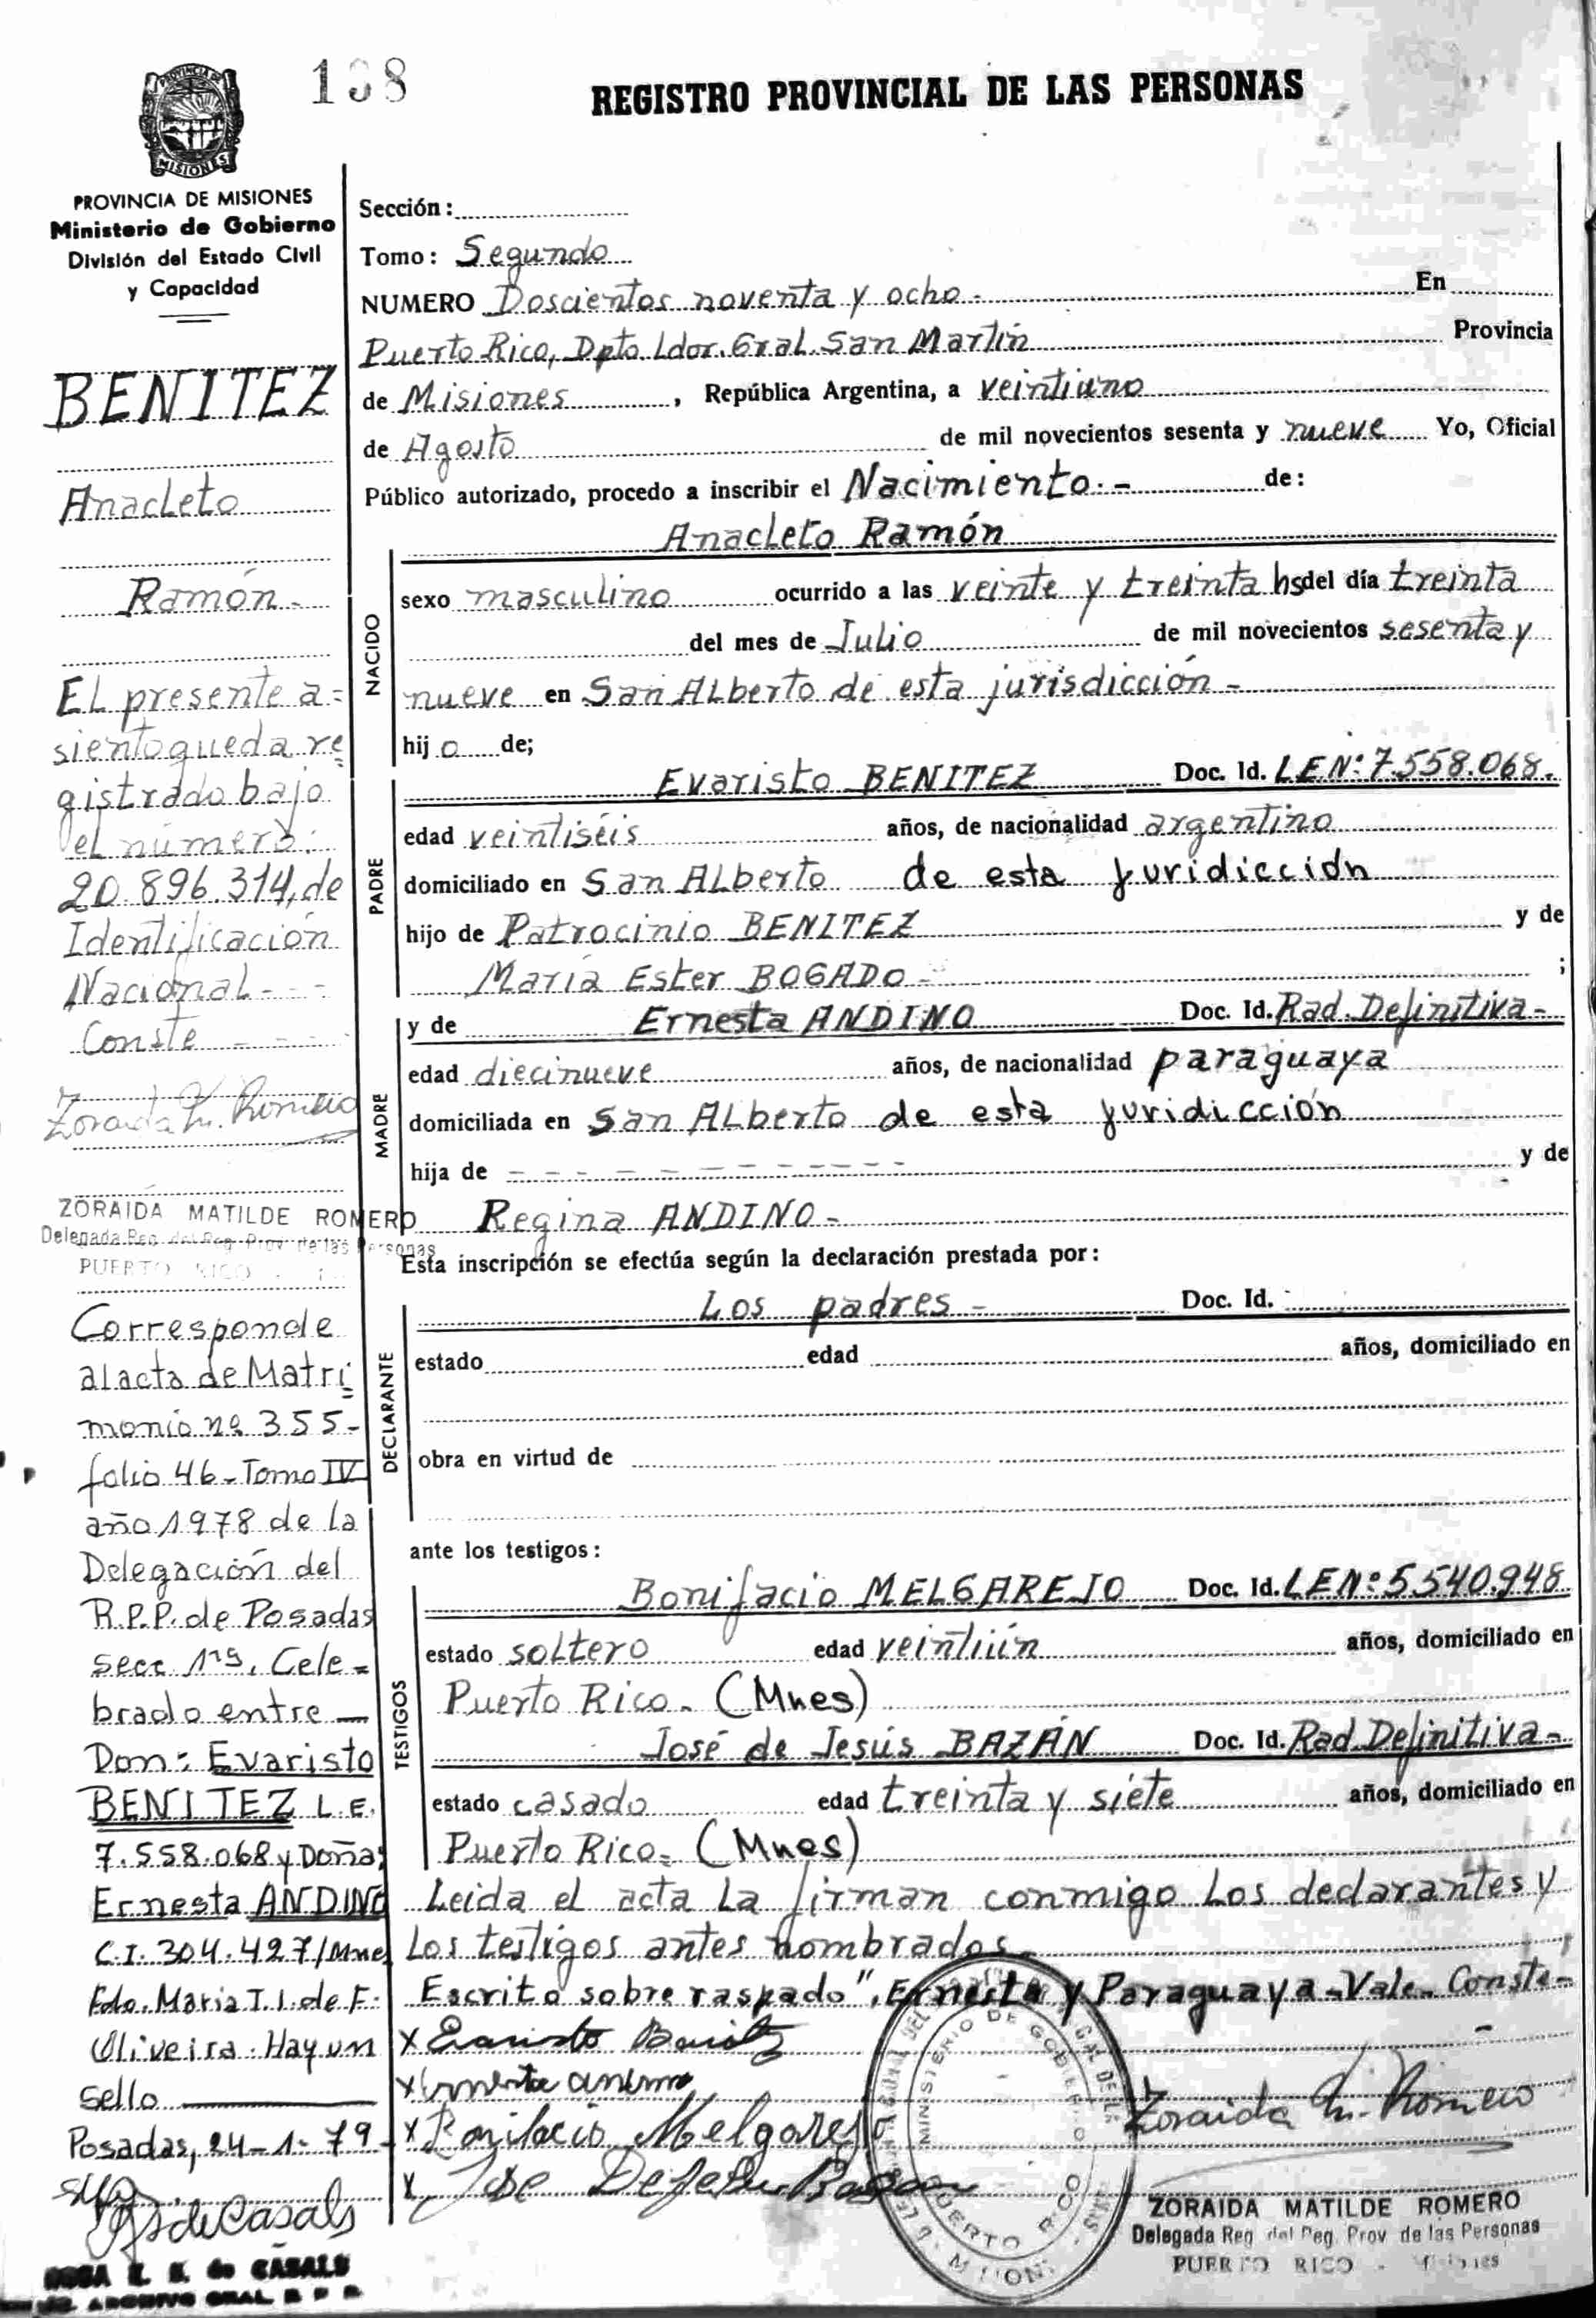 138
REGISTRO PROVINCIAL DE LAS PERSONAS
PROVINCIA DE
MISIONES
PROVINCIA DE MISIONES
Ministerio de Gobierno
División del Estado Civil
y Capacidad
BENITEZ
Anacleto
Ramón.-
EL presente a=
siento queda re=
gistrado bajo
el número:
20.896.314, de
Identificación
Nacional - - -
Conste - - -
Zoraida M. Romero
ZORAIDA MATILDE ROMERO
Delegada Reg. del Reg. Prov. de las Personas
PUERTO RICO
Corresponde
al acta de Matri=
monio nº 355-
folio 46-Tomo IV
año 1978 de la
Delegación del
R.P.P. de Posadas
secc 1ra, Cele=
brado entre —
Don: Evaristo
BENITEZ L.E.
7.558.068 y Doña:
Ernesta ANDINO
C.I. 304.427/Mnes
Fdo. Maria I.I. de F.
Oliveira. Hay un
sello
Posadas, 24-1-79-
de Casals
de CASALS
ARCHIVO GRAL. R P P
Sección:
Tomo: Segundo
NUMERO Doscientos noventa y ocho.- En
Puerto Rico, Dpto Ldor. Gral. San Martín Provincia
de Misiones, República Argentina, a veintiuno
de Agosto de mil novecientos sesenta y nueve Yo, Oficial
Público autorizado, procedo a inscribir el Nacimiento.- de:
NACIDO
Anacleto Ramón
sexo masculino ocurrido a las veinte y treinta hs del día treinta
del mes de Julio de mil novecientos sesenta y
nueve en San ALberto de esta jurisdicción -
hijo de;
PADRE
Evaristo BENITEZ Doc. Id. LEN: 7.558.068.
edad veintiséis años, de nacionalidad argentino
domiciliado en San ALberto de esta juridicción
hijo de Patrocinio BENITEZ y de
María Ester BOGADO - ;
MADRE
y de Ernesta ANDINO Doc. Id. Rad. Definitiva -
edad diecinueve años, de nacionalidad paraguaya
domiciliada en San ALberto de esta juridicción
hija de - - - - - - - - - - - y de
Regina ANDINO -
Esta inscripción se efectúa según la declaración prestada por:
DECLARANTE
Los padres - Doc. Id. -
estado edad años, domiciliado en
obra en virtud de
ante los testigos:
TESTIGOS
Bonifacio MELGAREJO Doc. Id. LEN: 5540.948
estado soltero edad veintiún años, domiciliado en
Puerto Rico. (Mnes)
José de Jesús BAZÁN Doc. Id. Rad. Definitiva -
estado casado edad treinta y siete años, domiciliado en
Puerto Rico. (Mnes)
Leida el acta La firman conmigo Los declarantes y
Los testigos antes nombrados.
Escrito sobre raspado", Ernesta y Paraguaya-Vale- Conste-
X Evaristo Benitez
X
X Bonifacio Melgarejo
X Jose De Jesu Bazan
MINISTERIO DE GOBIERNO
PUERTO RICO
Zoraida M. Romero
ZORAIDA MATILDE ROMERO
Delegada Reg. del Reg. Prov. de las Personas
PUERTO RICO - Misiones